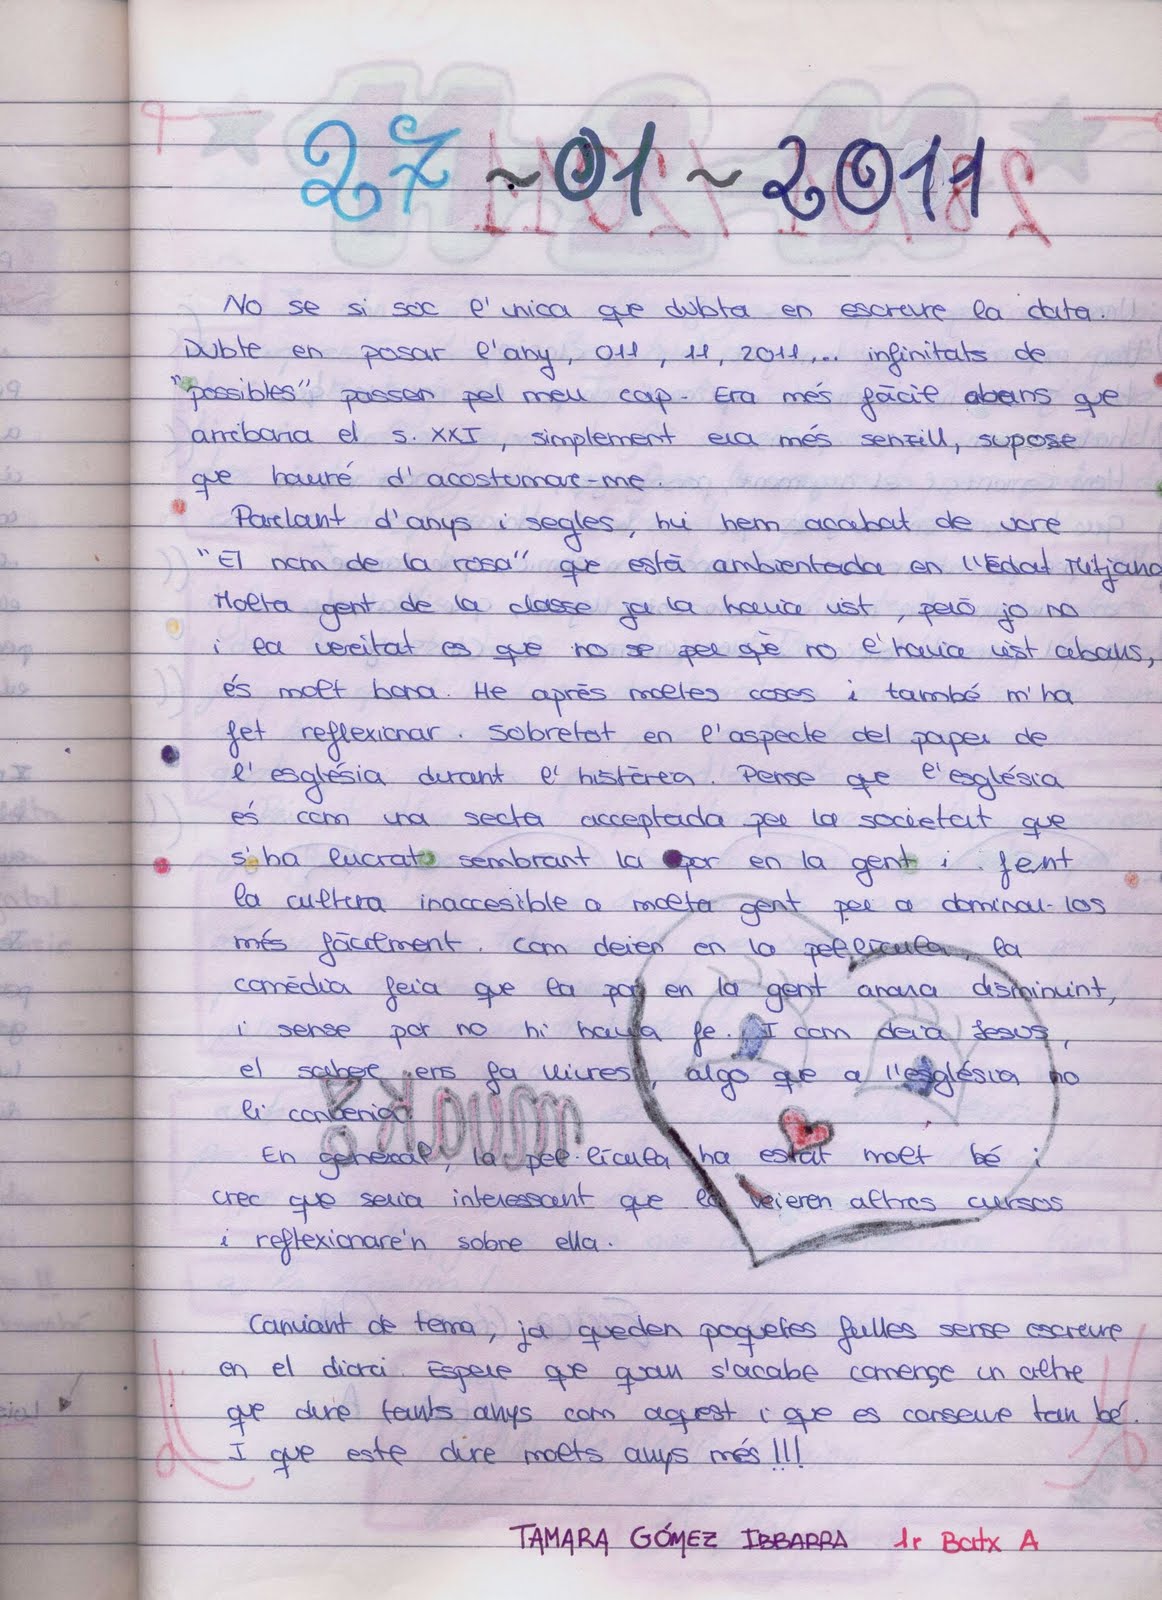 27 ~ 01 ~ 2011
No se si soc l'unica que dubta en escreure la data.
Duble en posar l'any, 011, 11, 2011,... infinitats de
"possibles" passen pel meu cap. Era més fàcil abans que
arribara el s. XXI, simplement era més senzill, supose
que hauré d'acostumar-me.
Parlant d'anys i segles, hui hem acabat de vore
"El nom de la rosa" que està ambientada en l'Edat Mitjana
Molta gent de la classe ja la havia vist, però jo no
i la veritat es que no se per què no l'havia vist abans,
és molt bona. He après moltes coses i també m'ha
fet reflexionar. Sobretot en l'aspecte del paper de
l'església durant l'història. Pense que l'església
és com una secta acceptada per la societat que
s'ha lucrat sembrant la por en la gent i fent
la cultura inaccesible a molta gent per a dominar-los
més fàcilment. Com deien en la pel·lícula, la
comèdia feia que la por en la gent anara disminuint,
i sense por no hi havia fe. I com deia Jesus,
el saber ens fa lliures, algo que a l'església no
li convenia.
En general, la pel·lícula ha estat molt bé i
crec que seria interessant que la veieren altres cursos
i reflexionare'n sobre ella.
Canviant de tema, ja queden poquetes fulles sense escreure
en el diari. Espere que quan s'acabe començe un altre
que dure tants anys com aquest i que es conserve tan bé.
I que este dure molts anys més!!!
TAMARA GÓMEZ IBBARRA 1r Batx A